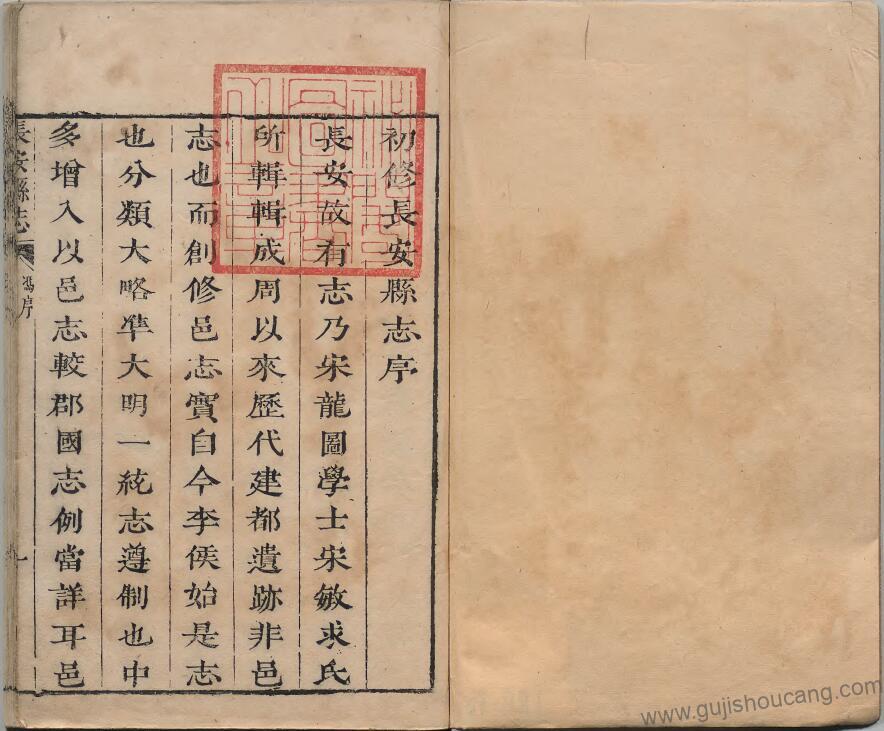 初修長安縣志序
長安故有志乃宋龍圖學士宋敏求氏
所輯輯成周以來歷代建都遺跡非邑
志也而創修邑志實自今李侯始是志
也分類大略準大明一統志遵制也中
多增入以邑志較郡國志例當詳耳邑
長安縣志
馮序
一
www.gujishoucang.com